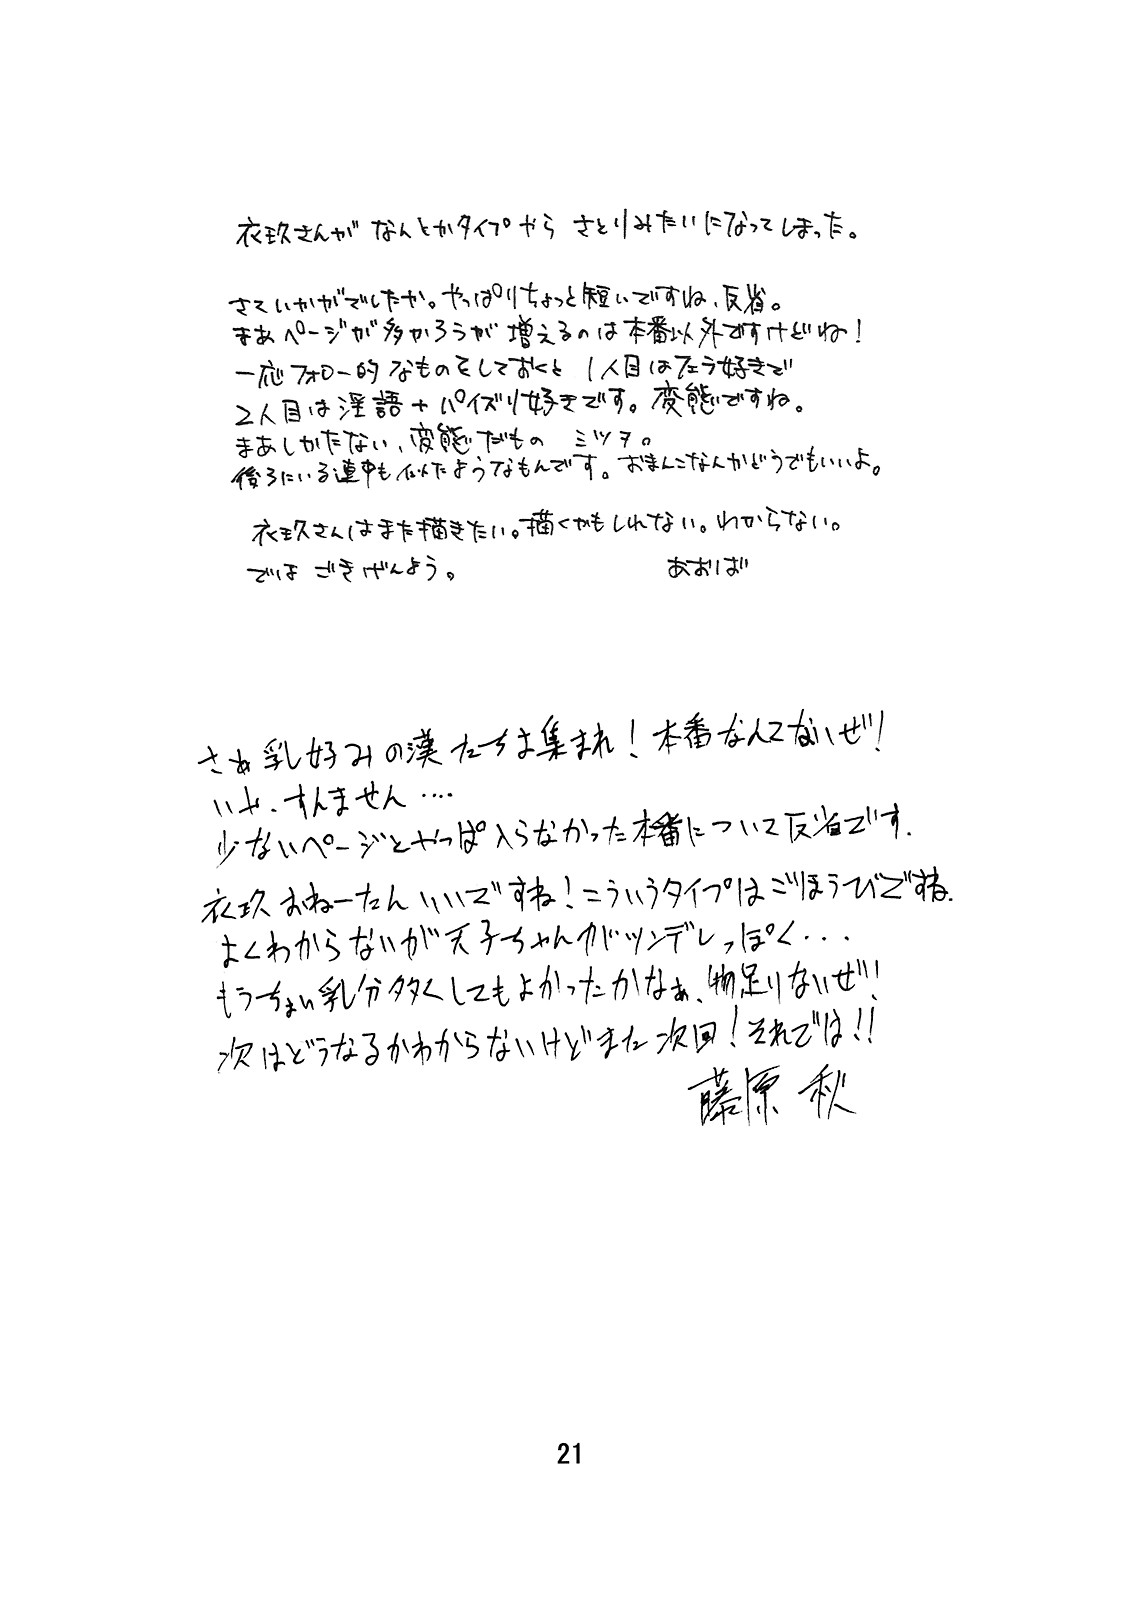 衣玖さんが なんとかタイプやら さとりみたいになってしまった。
さていかがでしたか。やっぱりちょっと短いですね、反省。
まあページが多かろうが増えるのは本番以外ですけどね！
一応フォロー的なものをしておくと 1人目はフェラ好きで
2人目は淫語＋パイズリ好きです。変態ですね。
まあしかたない、変態だもの ミツヲ。
後ろにいる連中も似たようなもんです。おまんこなんかどうでもいいよ。
衣玖さんはまた描きたい。描くかもしれない。わからない。
では ごきげんよう。 あおば
さぁ乳好みの漢たちよ集まれ！本番なんてないぜ！
いや、すんません‥‥
少ないページとやっぱ入らなかった本番について反省です.
衣玖おねーたんいいですね！こういうタイプはごほうびですね.
よくわからないが天子ちゃんがツンデレっぽく・・・
もうちょい乳分多くしてもよかったかなぁ、物足りないぜ！
次はどうなるかわからないけどまた次回！それでは!!
藤原 秋
21